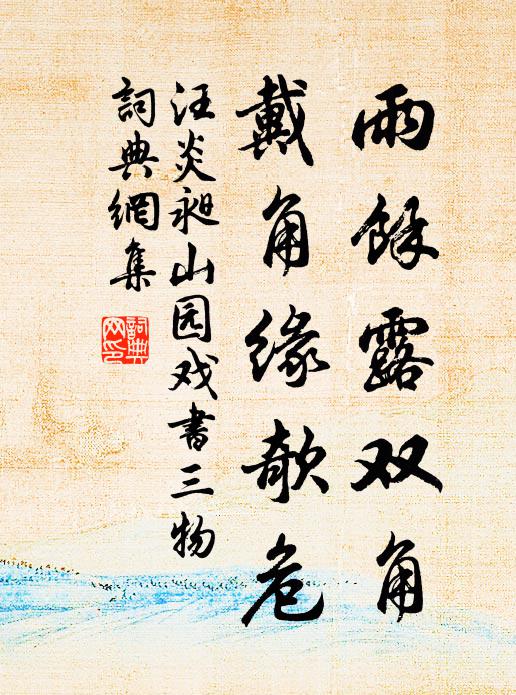 雨餘露双角
戴角缘欹危
汪炎昶山园戏書三物
詞典網集
詞典网印